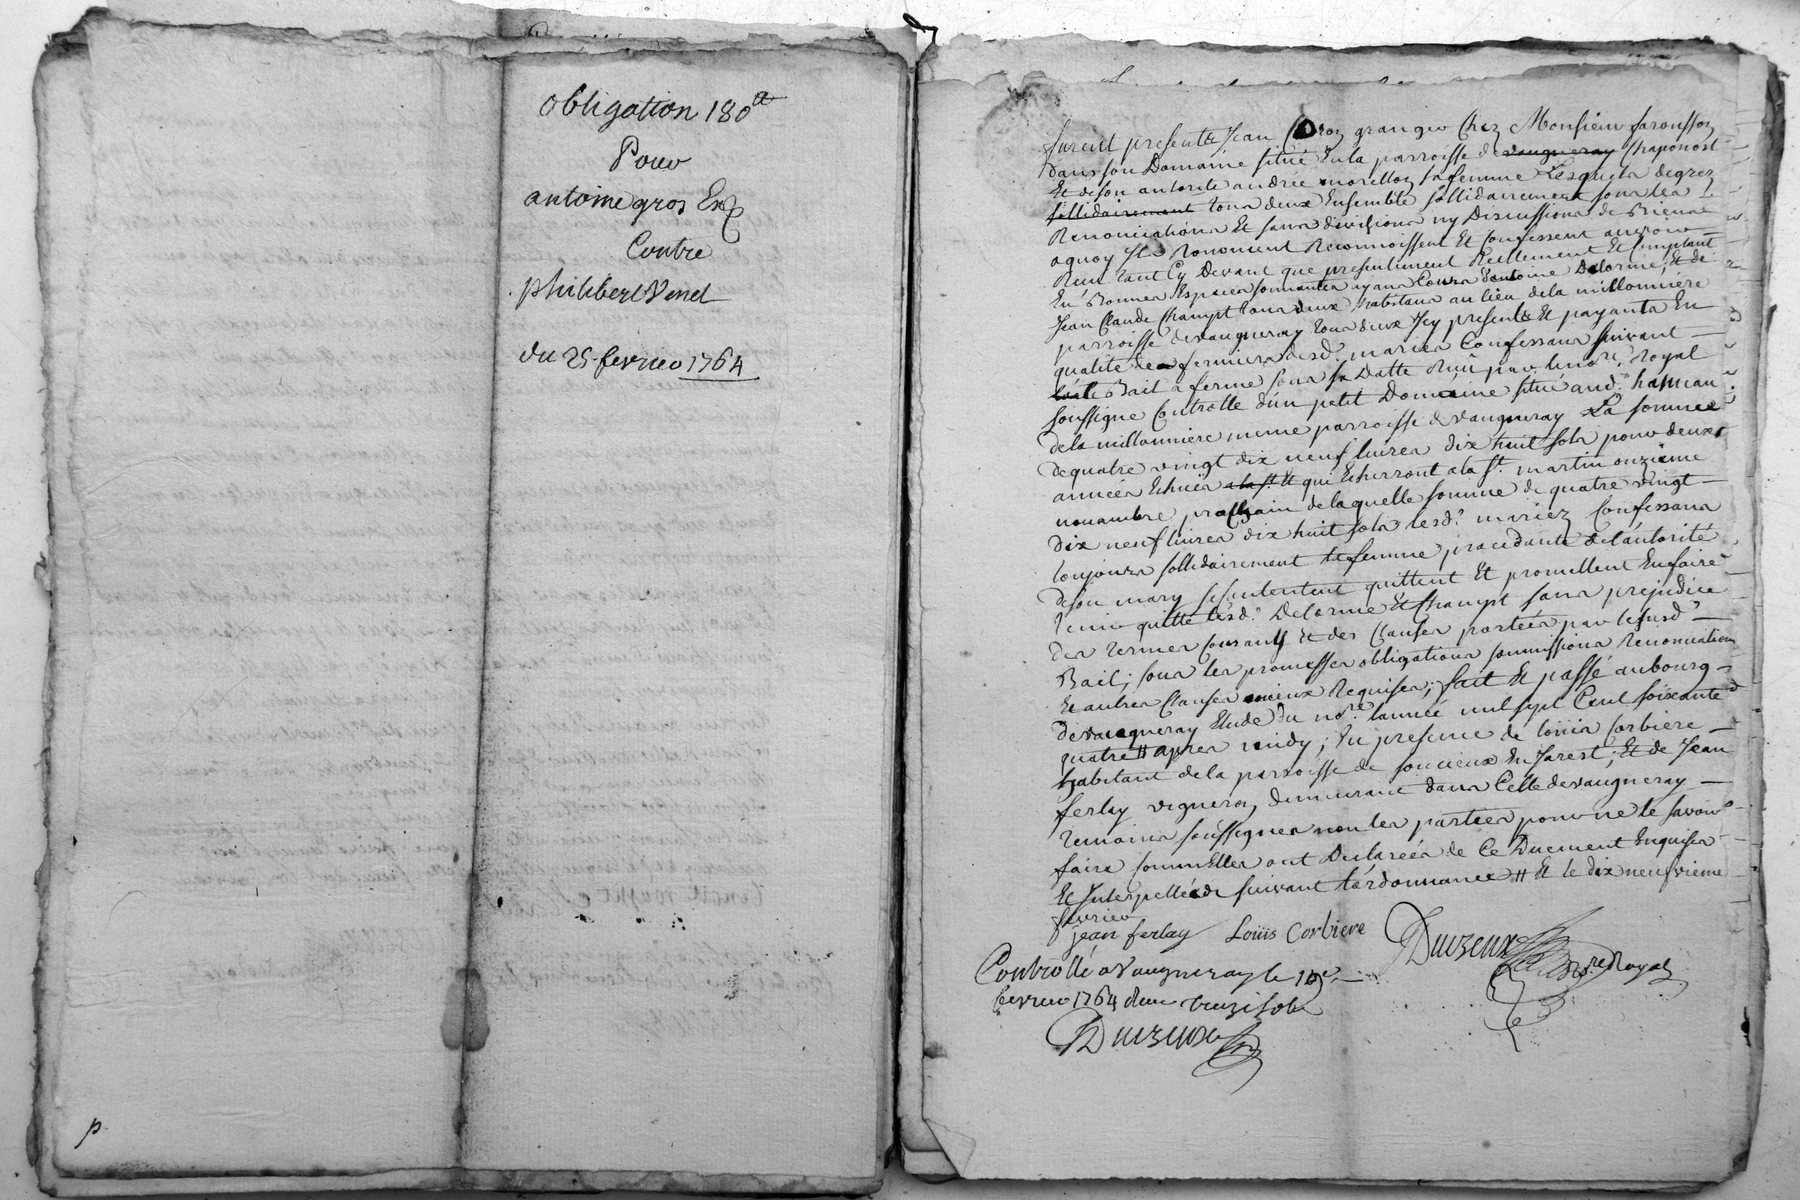 obligation 180#
Pour
antoine gros Ex
Contre
philibert Venet
du 25 fevrier 1764
p
furent presents Jean granger Chez Monsieur farousson
dans son Domaine situé en la parroisse de vaugneray Chaponost
Et de son autorité andrée morellon sa femme Lesquels de grez
sollidairement tous deux Ensemble sollidairement sous les
Renonciations Et sans divisions ny Discussions de Biens
aquoy ils Renoncent Reconnoissent Et Confessent avoir
Reçu tant Cy Devant que presentement Reellement Et Comptant
En Bonnes Especes sonnantes ayans Cours d'antoine Delorme, Et de
Jean Claude Champt tous deux habitans au lieu de la millonniere
parroisse de vaugneray tous deux Icy presents Et payants En
qualité de fermiers desd. mariez Confessans suivant
Bail a ferme sous sa Datte Reçu par le no.re Royal
soussigné Controllé d'un petit Domaine situé aud. hameau
de la millonniere meme parroisse de vaugneray La somme
de quatre vingt dix neuf livres dix huit sols pour deux
années Echues a la st Et qui Echerront a la St. martin onzieme
novambre prochain de laquelle somme de quatre vingt
dix neuf livres dix huit sols lesd. mariez Confessans
toujours sollidairement la femme procedante de l'autorité
de son mary se contentent quittent Et promettent En faire
tenir quitte lesd. Delorme Et Champt sans prejudice
des termes Courants Et des Clauses portées par le susd.
Bail; sous les promesses obligations soumissions Renonciations
Et autres Clauses mieux Requises; fait Et passé au bourg
de vaugneray Etude du no.re l'année mil sept Cent soixante
quatre # apres midy; En presence de louis Corbiere
habitant de la parroisse de soucieux En Jarest; Et de Jean
ferlay vigneron, demeurant dans Celle de vaugneray
temoins soussignes non les parties pour ne le savoir
faire comm'Elles ont Declarées de Ce Duement Enquises
Et Interpellées suivant l'ordonnance # Et le dix neufvieme
fevrier
jean ferlay Louis Corbiere
no.re Royal
Controllé a Vaugneray le 19e
fevrier 1764 Reçu treize sols